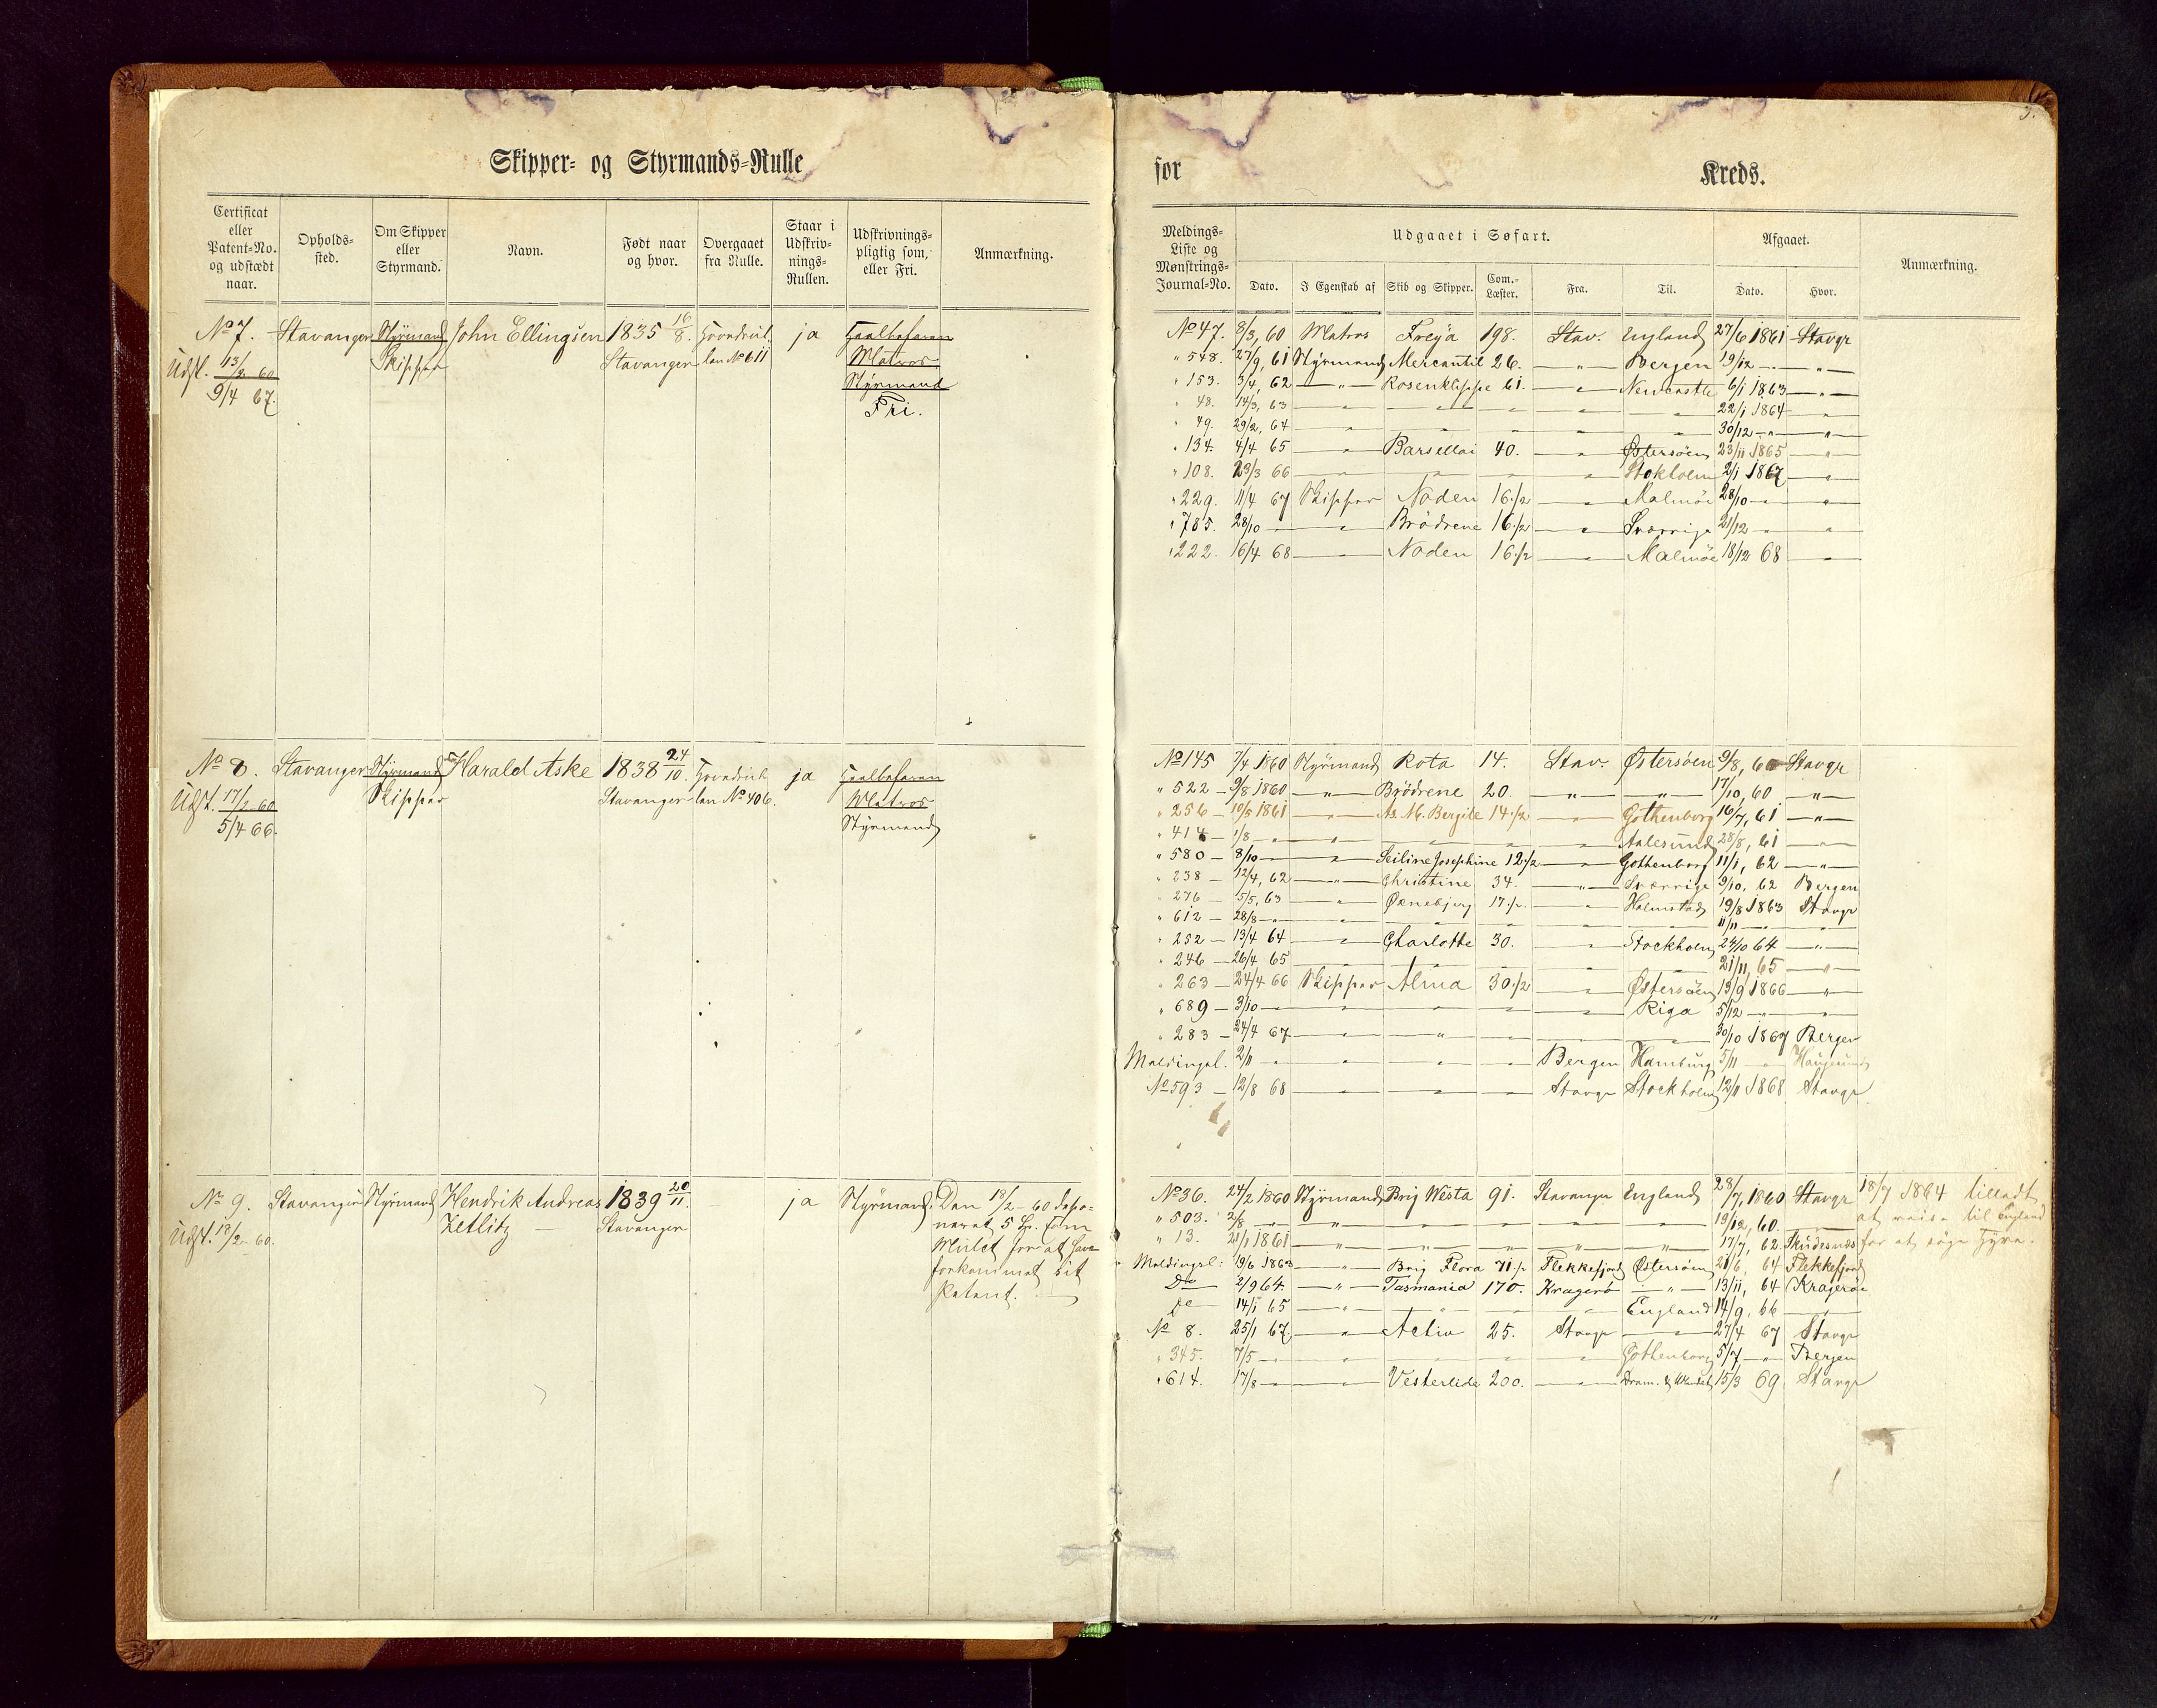 Skipper- og Styrmands-Rulle
for Kreds.
3.
Certificat eller Patent-No. og udstædt naar.
Opholdssted.
Om Skipper eller Styrmand.
Navn.
Født naar og hvor.
Overgaaet fra Rulle.
Staar i Udskrivnings-Rullen.
Udskrivningspligtig som, eller Fri.
Anmærkning.
Meldings-Liste og Mønstrings-Journal-No.
Udgaaet i Søfart.
Dato.
I Egenskab af
Skib og Skipper.
Com.-Læster.
Fra.
Til.
Afgaaet.
Dato.
Hvor.
Anmærkning.
No 7. Stavanger Styrmand John Ellingsen 1835 16/8. Hovedrul- ja Heelbefaren
Udst. 13/2 60 Skipper Stavanger len No 611 Matros
9/4 67. Styrmand
Fri.
No 47. 8/3, 60 Matros Freya 198. Stav. England 27/6 1861 Stavgr
" 548. 27/9, 61 Styrmand Mercantil 26. " Bergen 19/12 " "
" 153. 3/4, 62 " Rosenklippe 61. " Newcastle 6/1 1863 "
" 48. 14/3, 63 " " " " " 22/1 1864 "
" 49. 29/2, 64 " " " " " 30/12 " "
" 134. 4/4 65 " Barsellai 40. " Østersøen 23/11 1865 "
" 108. 23/3 66 " " " " Stokholm 2/1 1867 "
" 229. 11/4 67 Skipper Noden 16 1/2 " Malmöe 28/10 " "
" 785. 28/10 " " Brödrene 16 1/2 " Sverrige 21/12 " "
" 222. 16/4 68 " Noden 16 1/2 " Malmöe 18/12 68 "
No 8. Stavanger Styrmand Harald Aske 1838 24/10. Hovedrul- ja Heelbefaren
Udst. 17/2 60 Skipper Stavanger len No 406. Matros
5/4 66. Styrmand
No 145 7/4 1860 Styrmand Rota 14. Stav. Østersøen 9/8, 60 Stavgr
" 522 9/8 1860 " Brödrene 20. " " 17/10, 60 "
" 256 10/5 1861 " As. M. Bergite 14 1/2 " Gothenborg 16/7, 61 "
" 414 1/8 " " " " " Aalesund 28/8, 61 "
" 580 8/10 " " Seiline Josephine 12 1/2 " Gothenborg 11/1, 62 "
" 238 12/4, 62 " Christine 34. " Sverrige 9/10, 62 Bergen
" 276 5/5, 63 " Ørnebjerg 17 1/2 " Halmstad 19/8 1863 Stavgr
" 612 28/8 " " " " " " 11/11 " "
" 252 13/4 64 " Charlotte 30. " Stockholm 24/10 64 "
" 246 26/4 65 " " " " " 21/11, 65 "
" 263 24/4 66 Skipper Alma 30 1/2 " Østersøen 13/9 1866 "
" 689 3/10 " " " " " Riga 5/12 " "
" 283 24/4 67 " " " " " 30/10 1867 Bergen
Meldingsl. 2/11 " " " " Bergen Hamburg 5/11 "
No 593 12/8 68 " " " Stavgr Stockholm 12/11 1868 Stavgr
No 9. Stavanger Styrmand Hendrik Andreas 1839 20/11. ja Styrmand. Den 18/2 - 60 depo-
Udst. 18/2 - 60. Zetlitz Stavanger neret 5 Sp. som
Mulct for at have
forkommet sit
Patent.
No 36. 24/2 1860 Styrmand Brig Westa 91. Stavanger England 28/7, 1860 Stavgr 18/7 1864 tilladt
" 503. 2/8 " " " " " " 19/12, 60. " at reise til England
" 13. 21/1 1861 " " " " " 17/7, 62. Skudesnæs for at søge Hyre.
Meldingsl: 19/6 1863 " Brig Flora 71 1/2 Flekkefjord Østersøen 21/6, 64 Flekkefjord
Do 2/9 64. " Tasmania 170. Kragerö " 13/11, 64 Kragerøe
Do 14/1 65 " " " " England 14/9, 66 "
No 8. 25/1 67. " Activ 25. Stavgr " 27/4 67 Stavgr
" 345. 7/5 " " " " " Gothenborg 5/7 " Bergen
" 614. 17/8 " " Vesterlide 200. " 15/3 69 Stavgr